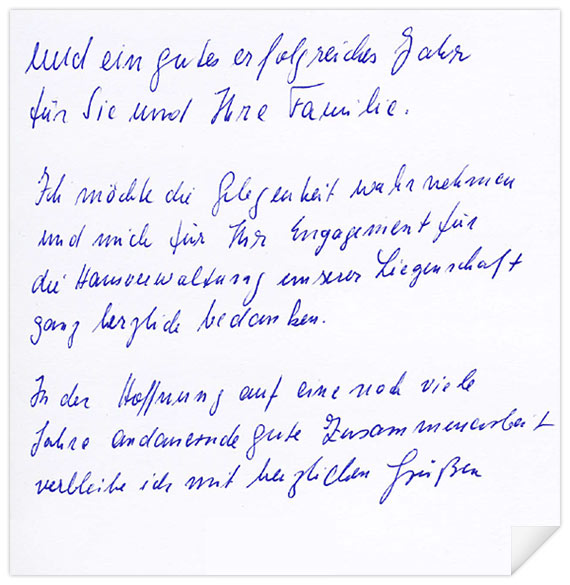 und ein gutes erfolgreiches Jahr
für Sie und Ihre Familie.
Ich möchte die Gelegenheit wahrnehmen
und mich für Ihr Engagement für
die Hausverwaltung unserer Liegenschaft
ganz herzlich bedanken.
In der Hoffnung auf eine noch viele
Jahre andauernde gute Zusammenarbeit
verbleibe ich mit herzlichen Grüßen